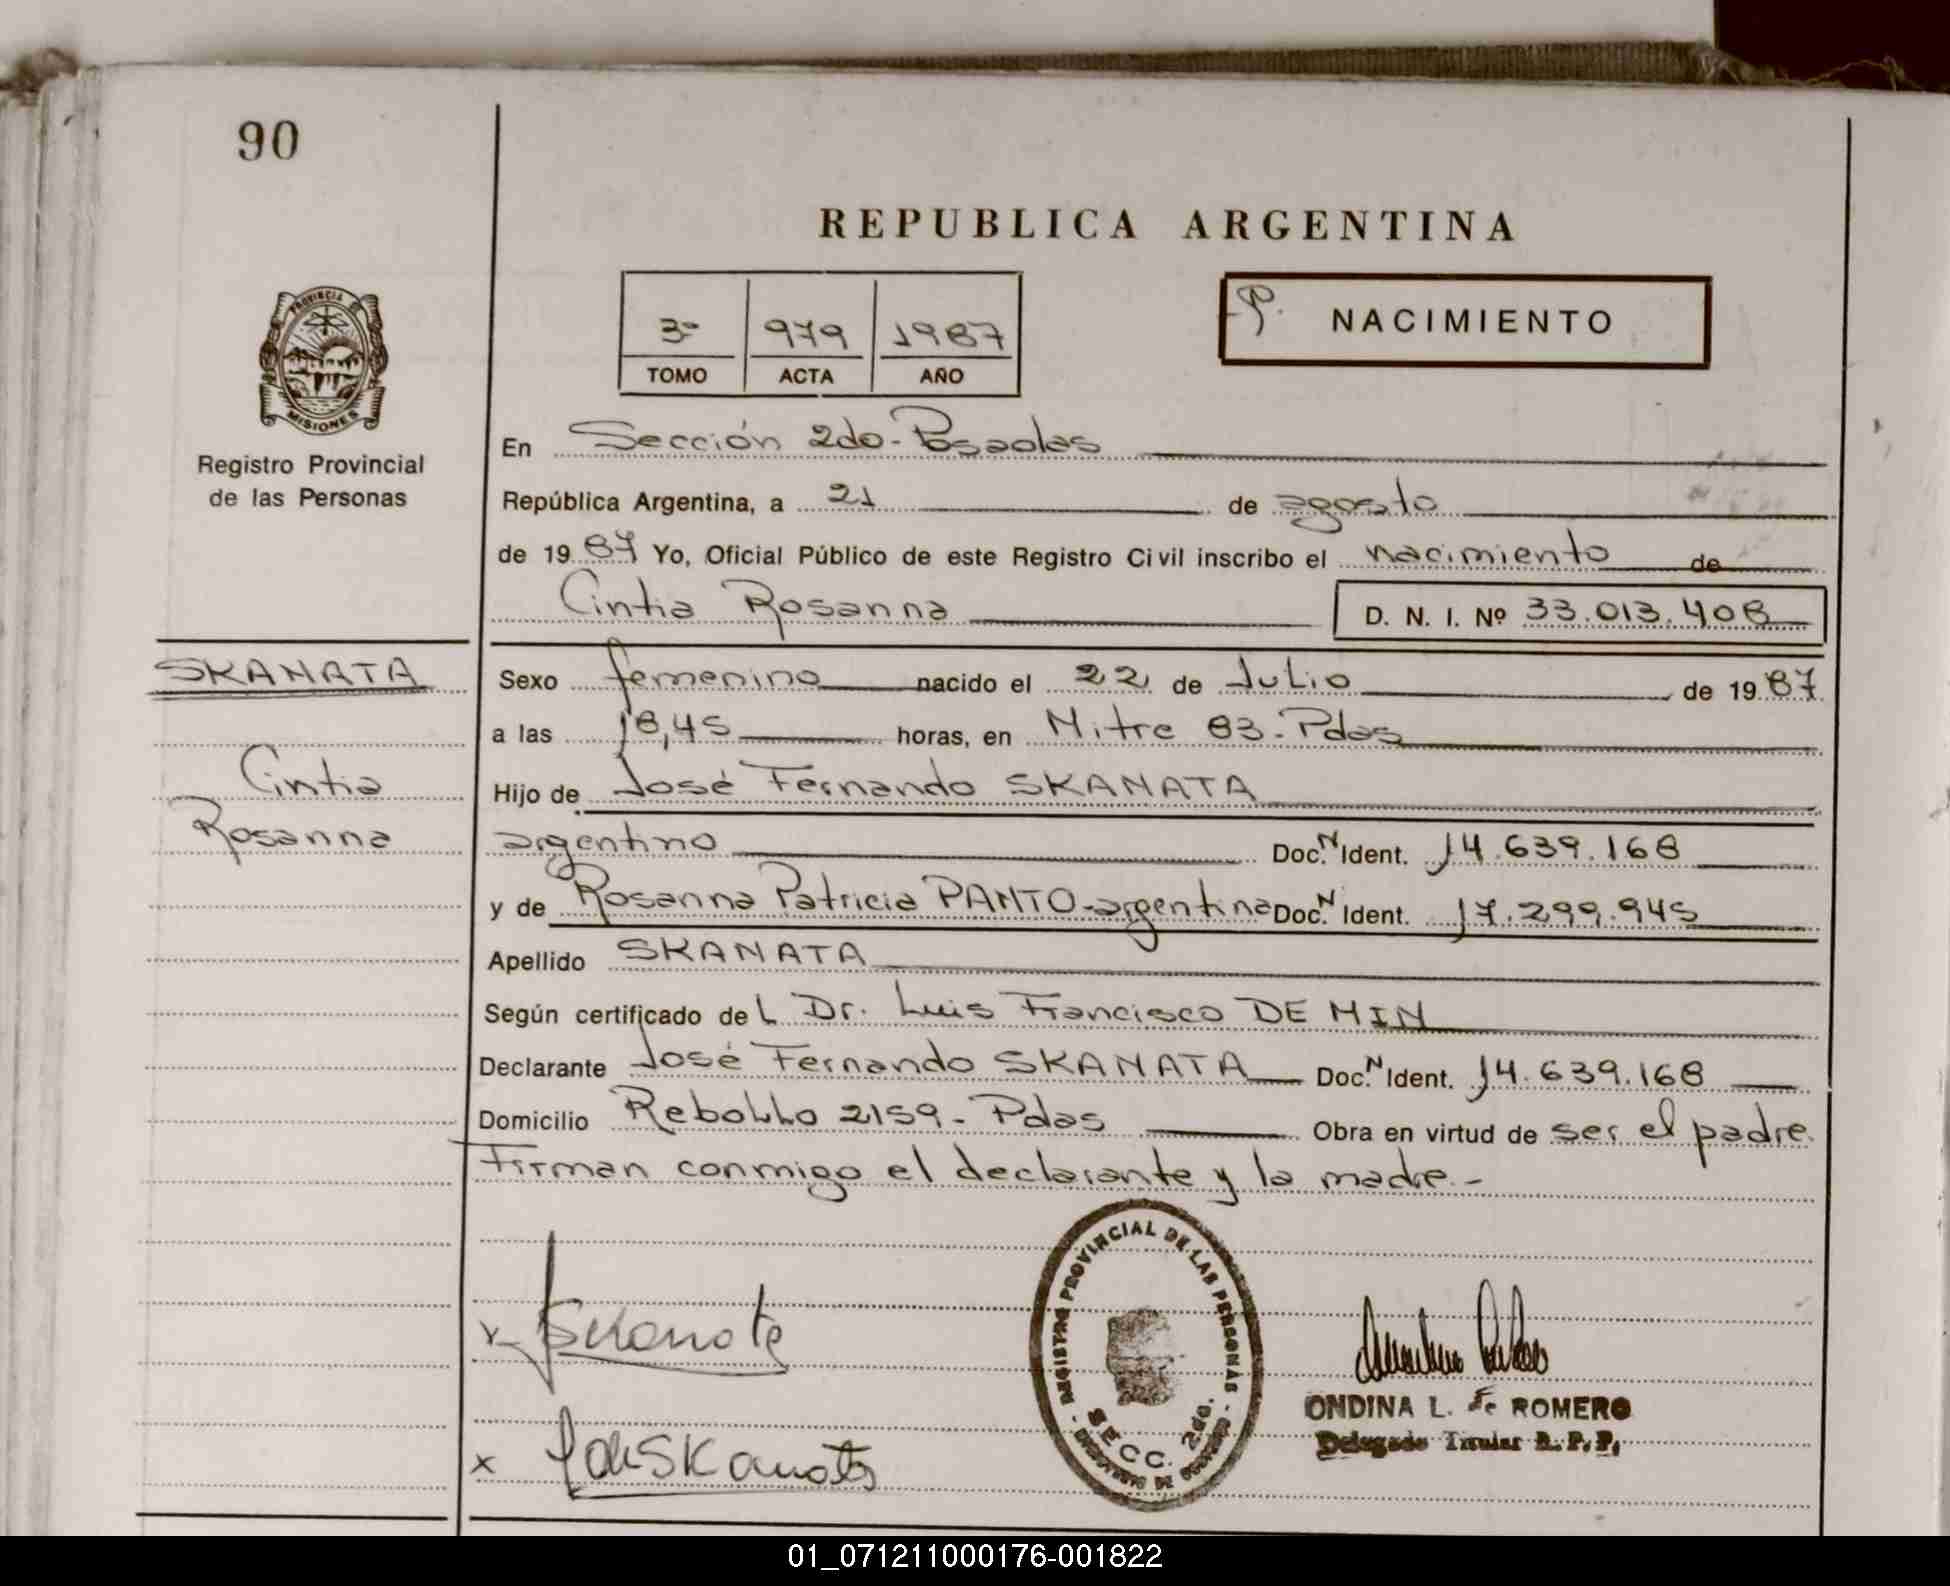 90
REPUBLICA ARGENTINA
PROVINCIA DE
MISIONES
Registro Provincial
de las Personas
3º 979 1987
TOMO ACTA AÑO
NACIMIENTO
En Sección 2do-Posadas
República Argentina, a 21 de agosto
de 1987 Yo, Oficial Público de este Registro Civil inscribo el nacimiento de
Cintia Rosanna D. N. I. Nº 33.013.408
SKANATA
Cintia
Rosanna
Sexo femenino nacido el 22 de Julio de 1987
a las 18,45 horas, en Mitre 83-Pdas
Hijo de José Fernando SKANATA
argentino Doc. N Ident. 14.639.168
y de Rosanna Patricia PANTO-argentina Doc. N Ident. 17.299.945
Apellido SKANATA
Según certificado del Dr. Luis Francisco DE MIN
Declarante José Fernando SKANATA Doc. N Ident. 14.639.168
Domicilio Rebollo 2159- Pdas Obra en virtud de ser el padre.
Firman conmigo el declarante y la madre.-
REGISTRO PROVINCIAL DE LAS PERSONAS
SECC. 2do.
x
x
ONDINA L. de ROMERO
Delegado Titular R. P. P.
01_071211000176-001822